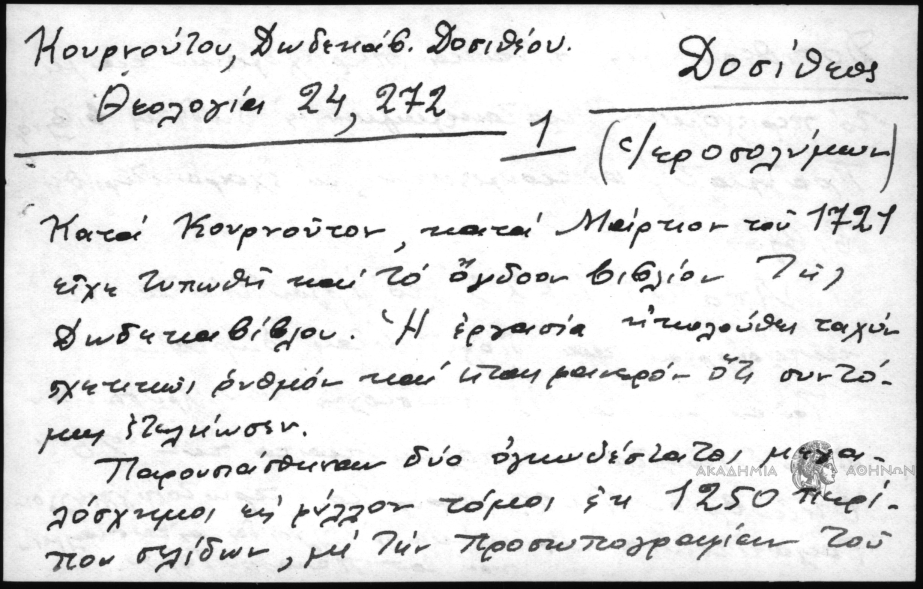 Κουρνούτου, Δωδεκάβ. Δοσιθέου.
Θεολογία 24, 272
Δοσίθεος
1
(Ἱεροσολύμων)
Κατά Κουρνοῦτον, κατά Μάρτιον τοῦ 1721
εἶχε τυπωθῆ καί τό ὄγδοον βιβλίον τῆς
Δωδεκαβίβλου. Ἡ ἐργασία ἠκολούθει ταχύν
σχετικῶς ρυθμόν καί ἦταν φανερόν ὅτι συντό-
μως ἐτελείωσεν.
Παρουσιάσθησαν δύο ὀγκωδέστατοι μεγα-
λόσχημοι εἰς φύλλον τόμοι ἐκ 1250 περί-
που σελίδων, μέ τήν προσωπογραφίαν τοῦ
ΑΚΑΔΗΜΙΑ ΑΘΗΝΩΝ